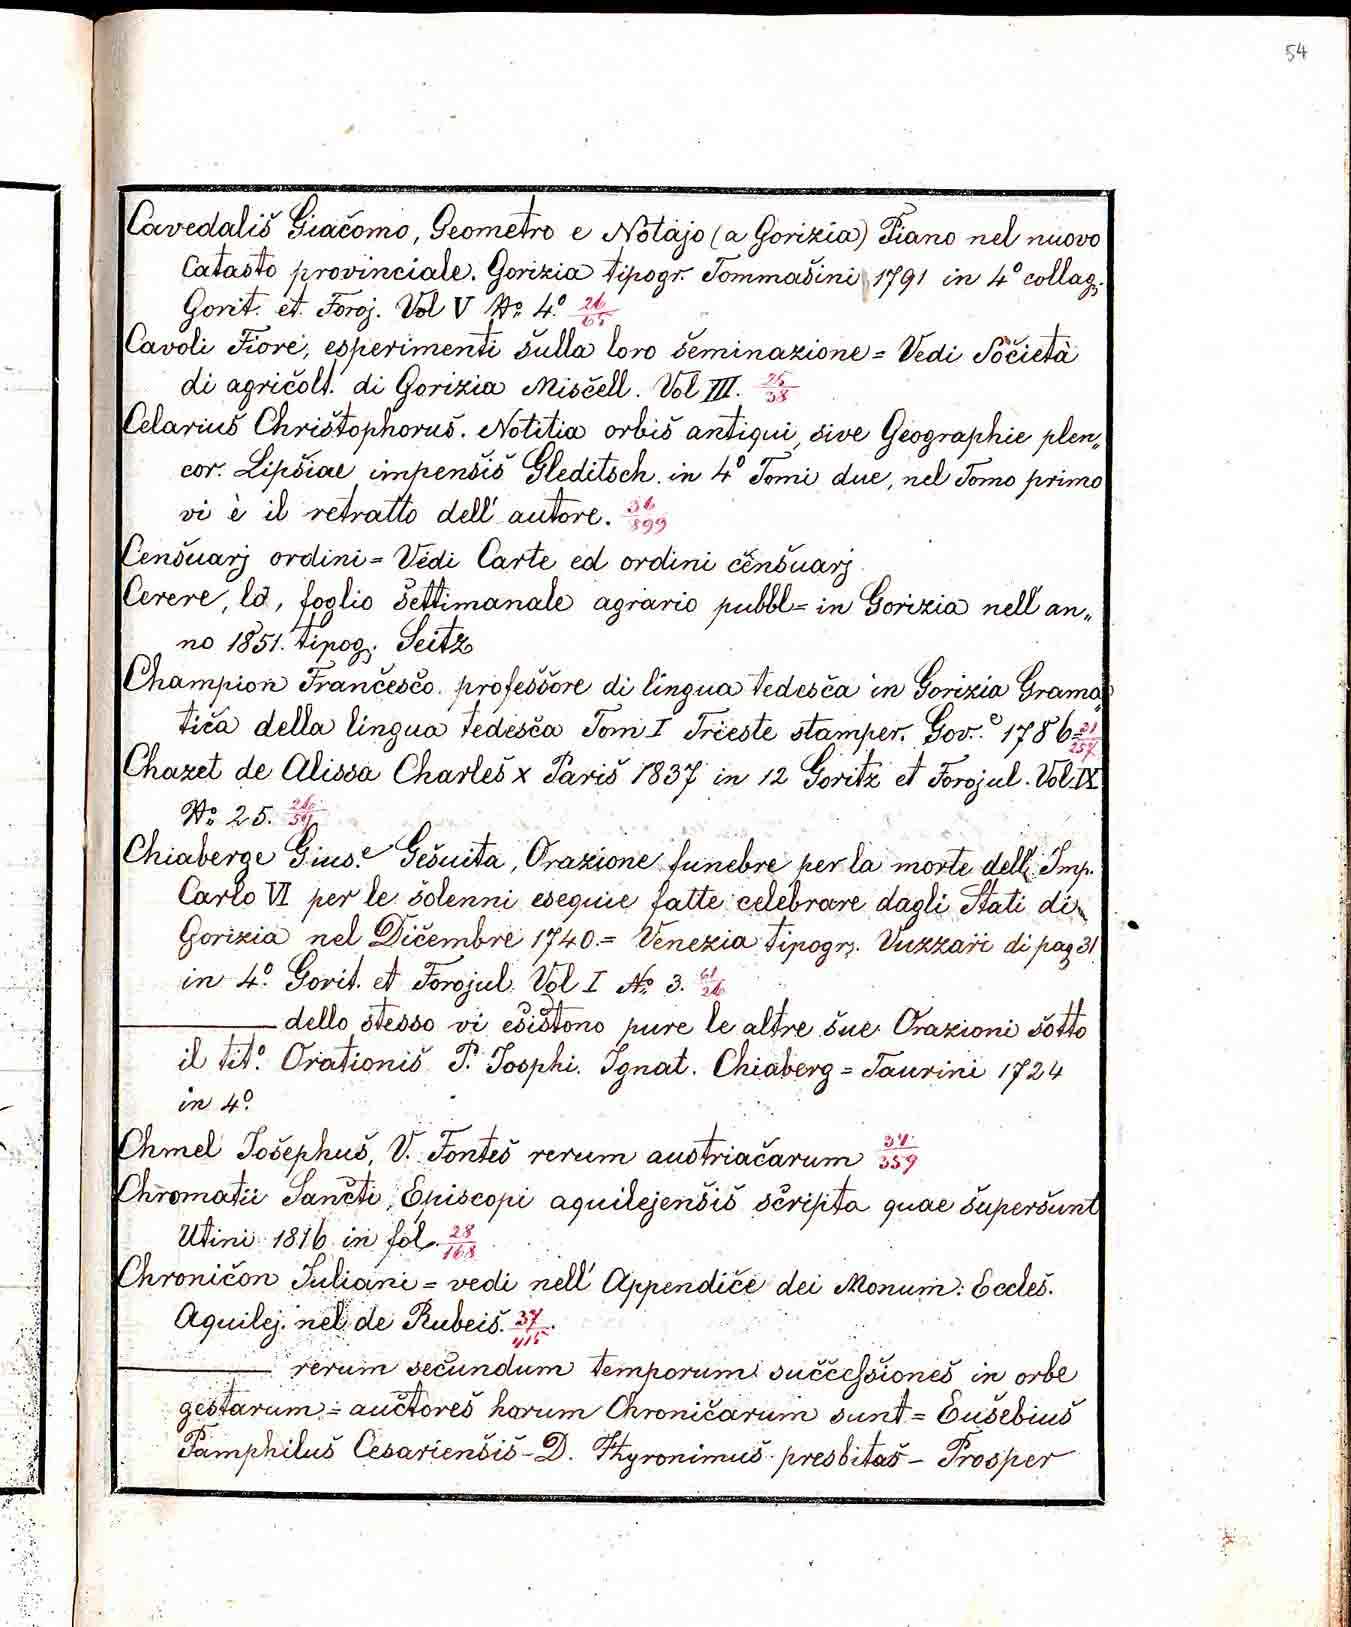 54
Cavedališ Giačomo, Geometro e Notajo (a Gorizia) Piano nel nuovo
Catasto provinciale. Gorizia tipogr. Tommašini 1791 in 4º collag.
Gorit. et. Foroj. Vol V Nº 4º. 26/65
Cavoli Fiore, esperimenti šulla loro šeminazione = Vedi Sočietà
di agričolt. di Gorizia Misčell. Vol III. 26/38
Celariuš Chrištophoruš. Notitia orbiš antiqui, sive Geographie plen„
cor. Lipšiae impenšiš Gleditsch. in 4º Tomi due, nel Tomo primo
vi è il retratto dell' autore. 36/899
Cenšuarj ordini = Vedi Carte ed ordini čenšuarj
Cerere, la, foglio šettimanale agrario pubbl= in Gorizia nell' an„
no 1851. tipog. Seitz
Champion Frančesčo. profeššore di lingua tedesča in Gorizia Grama„
tiča della lingua tedesča Tom I Trieste stamper. Gov.e 1786= 31/257
Chazet de Alissa Charleš x Pariš 1837 in 12 Goritz et Forojul. Vol IX
Nº 25. 26/59
Chiaberge Gius.e Gešuita, Orazione funebre per la morte dell' Imp.
Carlo VI per le šolenni esequie fatte celebrare dagli Stati di
Gorizia nel Dičembre 1740. = Venezia tipogr. Vuzzari di pag 31
in 4º. Gorit. et Forojul. Vol I Nº 3. 61/26
dello stesso vi ešištono pure le altre šue Orazioni šotto
il titº. Orationiš P. Iosphi. Ignat. Chiaberg = Taurini 1724
in 4º.
Chmel Iošephuš, V. Fonteš rerum austriačarum 34/359
Chromatii Sančti, Episcopi aquilejenšiš sčripta quae šuperšunt
Utini 1816 in fol. 28/168
Chroničon Iuliani = vedi nell' Appendiče dei Monum: Eccleš.
Aquilej. nel de Rubeiš. 37/415
rerum sečundum temporum suččeſšioneš in orbe
gestarum = aučtoreš harum Chroničarum sunt = Eušebiuš
Pamphiluš Cesarienšiš - D. Hyronimuš presbitaš - Prosper